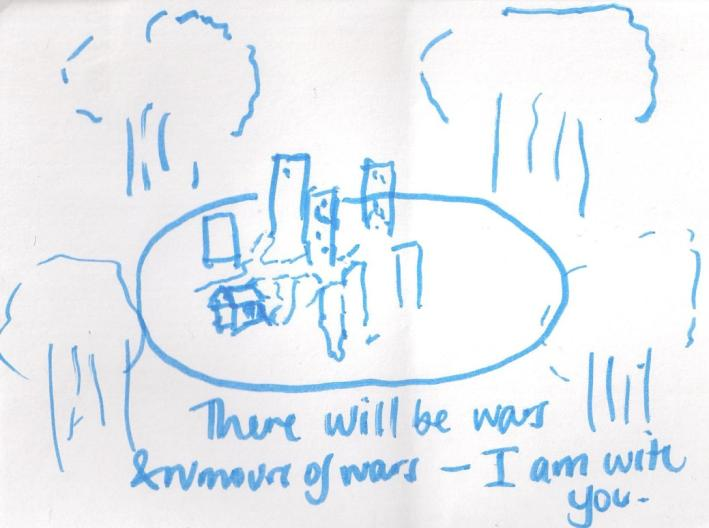 There will be wars
& rumours of wars – I am with
you.